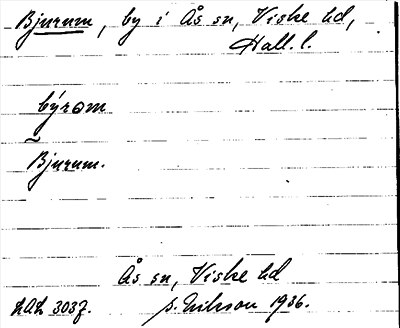 Bjurum, by i Ås sn, Viske hd,
Hall. l.
býrom
~
Bjurum.
Ås sn, Viske hd
LAL 3037. p. Nilsson 1936.